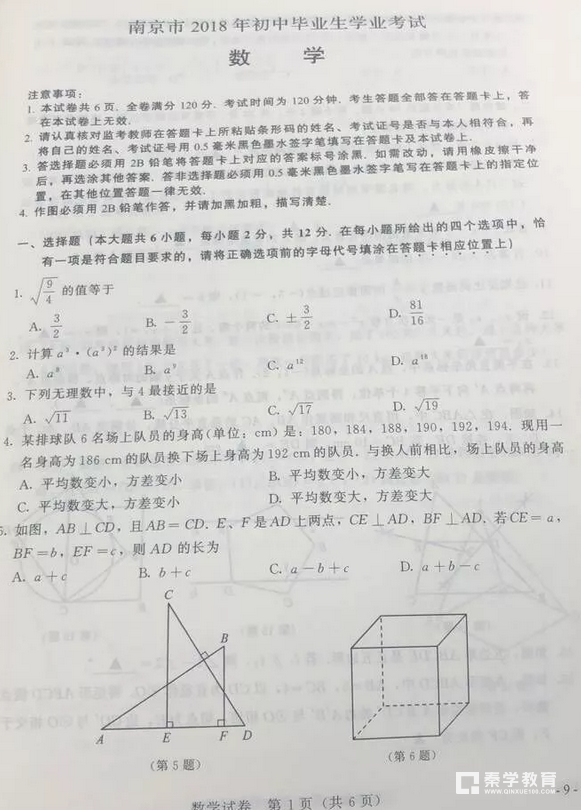 南京市 2018 年初中毕业生学业考试
数 学
注意事项:
1. 本试卷共 6 页. 全卷满分 120 分. 考试时间为 120 分钟. 考生答题全部答在答题卡上, 答
在本试卷上无效.
2. 请认真核对监考教师在答题卡上所粘贴条形码的姓名、考试证号是否与本人相符合, 再
将自己的姓名、考试证号用 0.5 毫米黑色墨水签字笔填写在答题卡及本试卷上.
3. 答选择题必须用 2B 铅笔将答题卡上对应的答案标号涂黑. 如需改动, 请用橡皮擦干净
后, 再选涂其他答案. 答非选择题必须用 0.5 毫米黑色墨水签字笔写在答题卡上的指定位
置, 在其他位置答题一律无效.
4. 作图必须用 2B 铅笔作答, 并请加黑加粗, 描写清楚.
一、选择题 (本大题共 6 小题, 每小题 2 分, 共 12 分. 在每小题所给出的四个选项中, 恰
有一项是符合题目要求的, 请将正确选项前的字母代号填涂在答题卡相应位置上)
1. √(9/4) 的值等于
A. 3/2 B. −3/2 C. ±3/2 D. 81/16
2. 计算 a³·(a³)² 的结果是
A. a⁸ B. a⁹ C. a¹² D. a¹⁸
3. 下列无理数中, 与 4 最接近的是
A. √11 B. √13 C. √17 D. √19
4. 某排球队 6 名场上队员的身高(单位: cm) 是: 180, 184, 188, 190, 192, 194. 现用一
名身高为 186 cm 的队员换下场上身高为 192 cm 的队员. 与换人前相比, 场上队员的身高
A. 平均数变小, 方差变小 B. 平均数变小, 方差变大
C. 平均数变大, 方差变小 D. 平均数变大, 方差变大
5. 如图, AB⊥CD, 且 AB=CD. E、F 是 AD 上两点, CE⊥AD, BF⊥AD. 若 CE=a,
BF=b, EF=c, 则 AD 的长为
A. a+c B. b+c C. a−b+c D. a+b−c
C
B
A E F D
(第 5 题) (第 6 题)
数学试卷 第 1 页 (共 6 页)
- 9 -
秦学教育
WWW.QINXUE100.COM